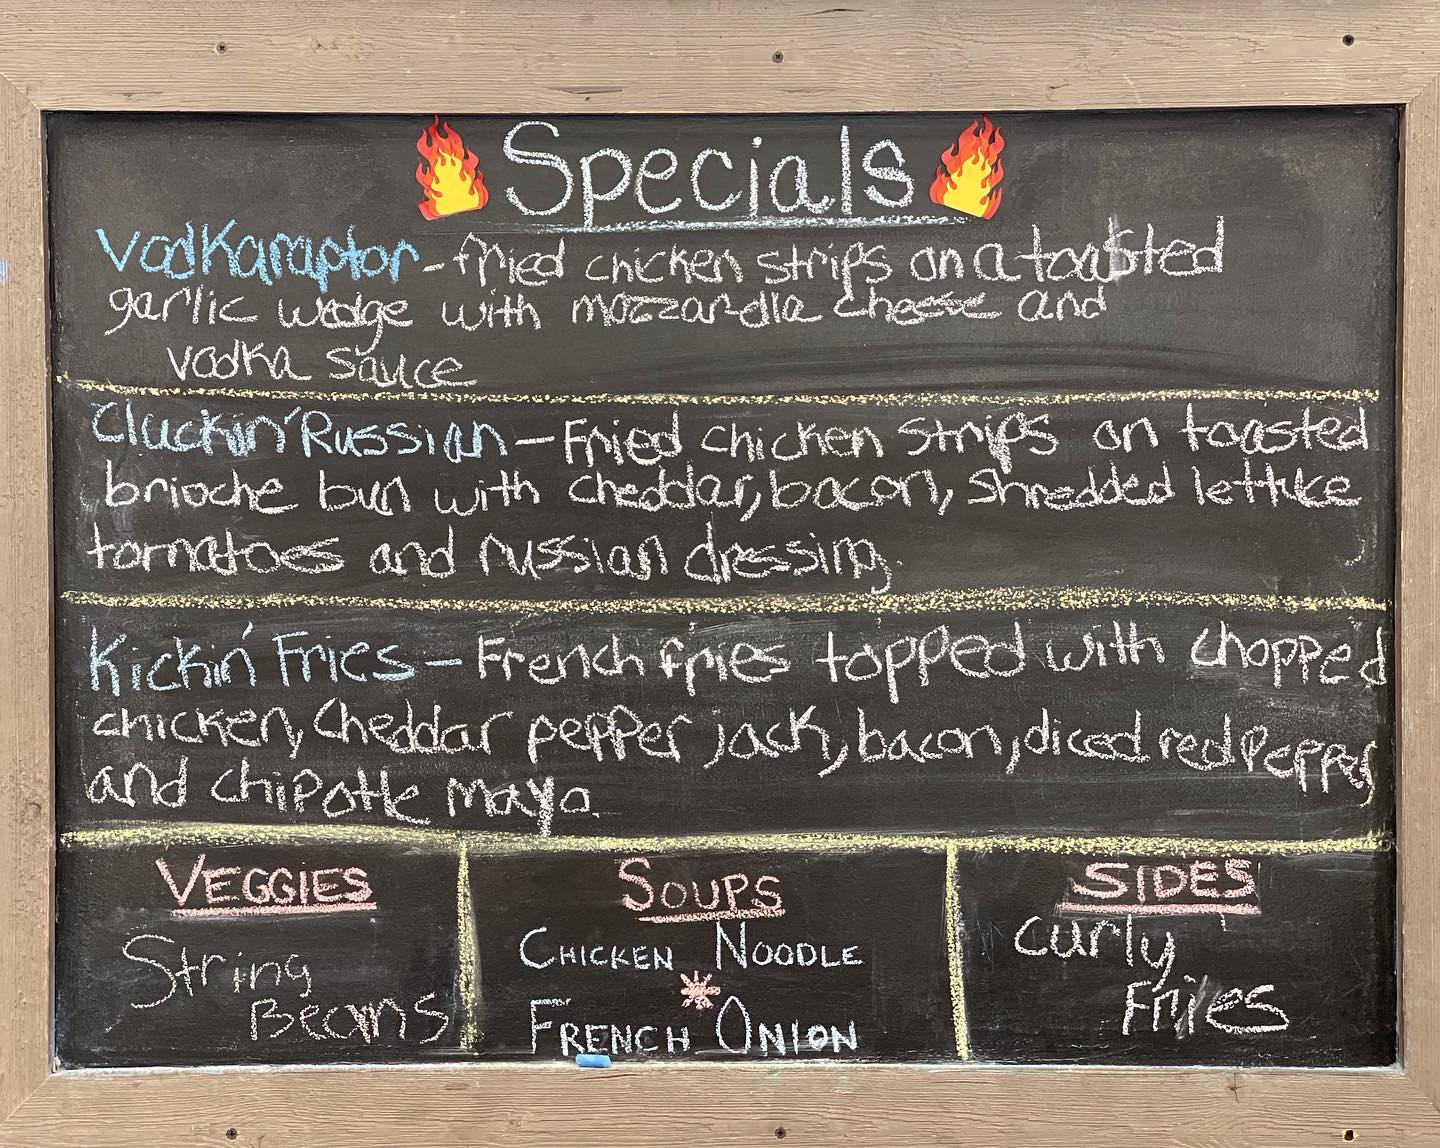 Specials
Vodkaraptor - fried chicken strips on a toasted
garlic wedge with mozzarella cheese and
vodka sauce
Cluckin' Russian - Fried chicken strips on toasted
brioche bun with cheddar, bacon, shredded lettuce
tomatoes and russian dressing.
Kickin' Fries - French fries topped with chopped
chicken, Cheddar pepper jack, bacon, diced red Pepper,
and chipotle mayo.
VEGGIES
String
Beans
SOUPS
CHICKEN NOODLE
FRENCH ONION
SIDES
Curly
Fries